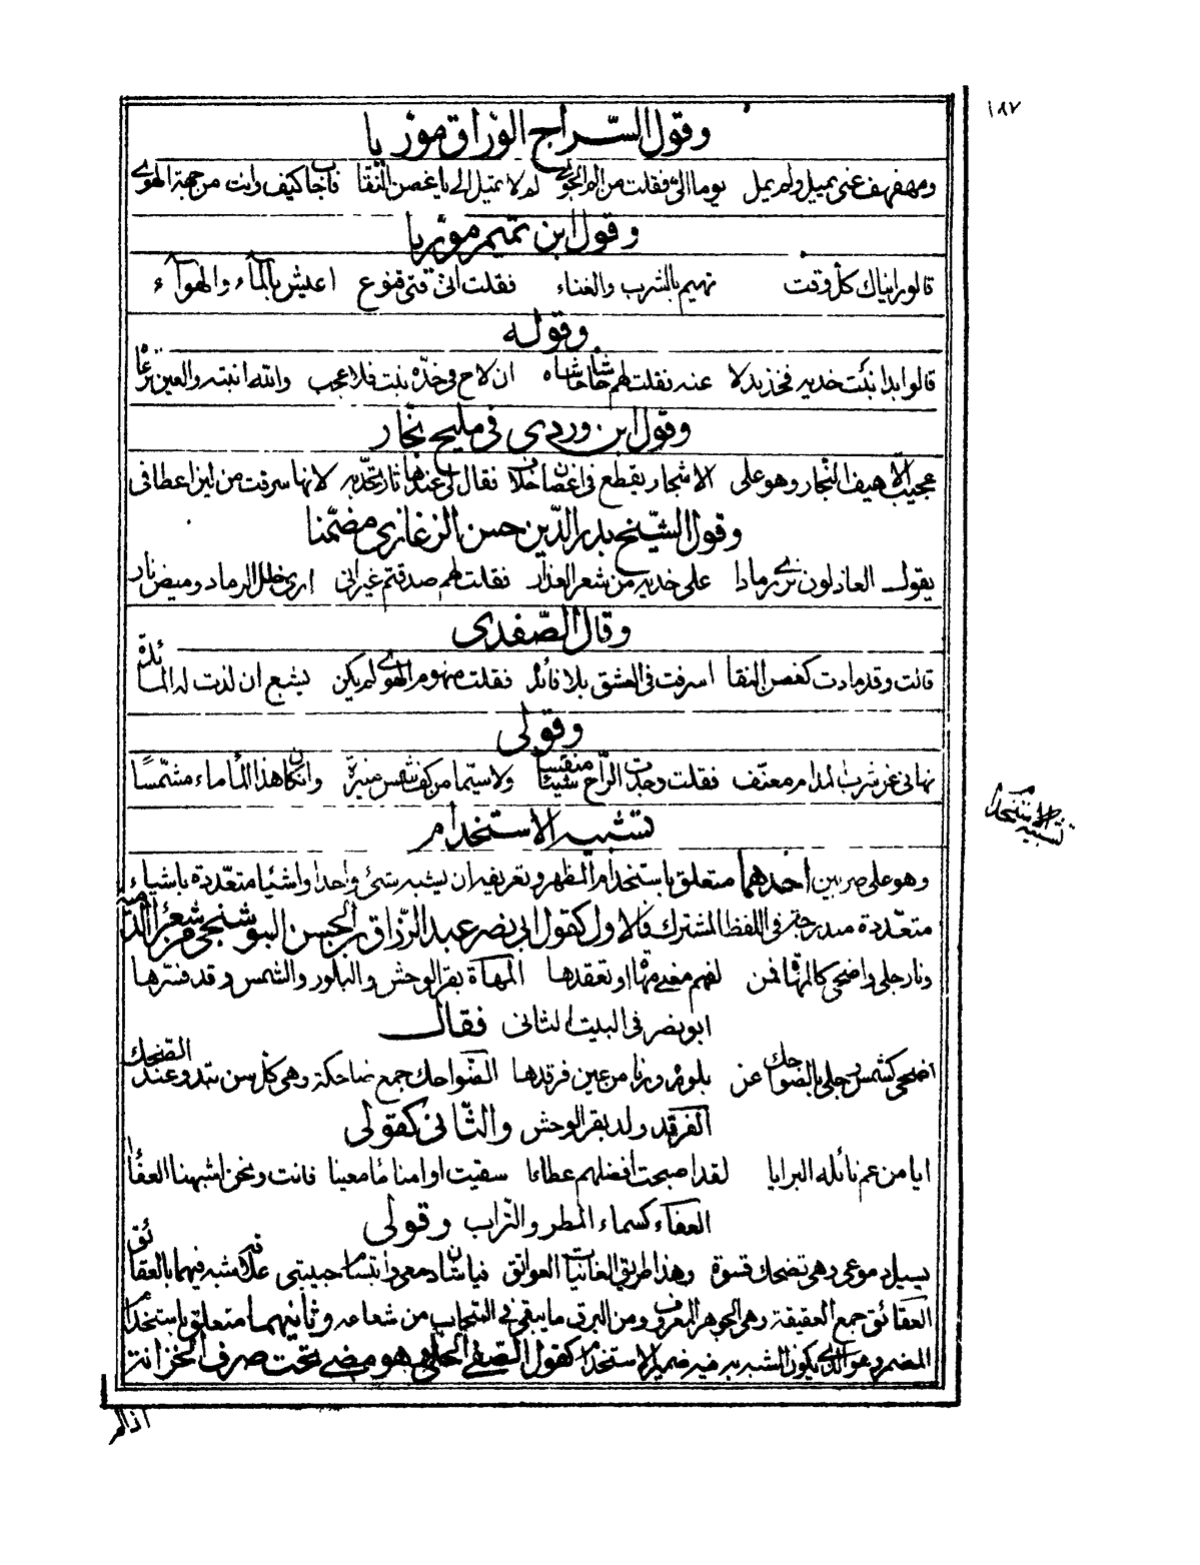 ١٨٧
وقول السّراج الورّاق مورّيا
ومهفهف عنى يميل ولم يمل يوما الىّ فقلت من الم الجوى لم لا تميل الى يا غصن النقا فاجاب كيف وانت من جهة الهوى
وقول ابن تميم مورّيا
قالو رايناك كل وقت تهيم بالشرب والغناء فقلت انى فتى قنوع اعيش بالمآء والهوآء
وقوله
قالوا بدا نبت خديه فخذ بدلا عنه فقلت لهم حاشا حاشاه ان لاح فى خدّه نبت فلا عجب والله انبته والعين ترعاه
وقول ابن وردى فى مليح نجّار
عجيب الاهيف النجّار وهو على الاشجار يقطع فى اغصان خلان فقال لى عندها ثار تحذّيه لانها سرقت من لين اعطافى
وقول الشّيخ بدر الدّين حسن الزغازى مضمّنا
يقول العاذلون نرى رمادا على خديه من شعر العذار فقلت لهم صدقتم غير انى ارى خلل الرماد وميض نار
وقال الصّفدى
قالت وقد مادت كغصن النقا اسرفت فى العشق بلا فائده فقلت منهوم الهوى لم يكن يشبع ان لذت له المائدة
وقولى
نهانى عن شرب المدام معنّف فقلت وجدت الرّاح شيئا منفّسا ولاسيّما من كف شمس منيرة وان كان هذا الماء ماء مشمّسًا
تشبيه الاستخدام
تشبيه الاستخدام
وهو على ضربين احدهما متعلق باستخدام المظهر وتعريفه ان يشبه شئ واحد او اشيا متعدّدة باشياء
متعدّدة مندرجة فى اللفظ المشترك فالاول كقول ابى نصر عبد الرّزاق بن الحسن البوشنجى من شعراء الدمية
ونار جلى واضحى كالمها فمن لفهم معنى مها او تعقدها المهاة بقر الوحش والبلور والشمس وقد فسّرها
ابو نصر فى البيت الثانى فقال
اضحى كشمس وجلى بالضواحك عن بلورة ورنا من عين فرقدها الضّواحك جمع ضاحكة وهى كل سن تبدو عند الضحك
الفرقد ولد بقر الوحش والثّانى كقولى
ايا من عم نائله البرايا لقد اصبحت افضلهم عطاءا سقيت اوامنا ماء معينا فانت ونحن اشبهنا العفاء
العفآء كسماء المطر والتراب وقولى
يسيل دموعى وهى تضحك قسوة وهذا طريق الغانيات العوائق فيا شان دمعى وابتسام حبيبتى علاقة مشبه فيهما بالعقائق
العقائق جمع العقيقة وهى الجوهر المعروف ومن البرق ما يبقى فى السّحاب من شعاعه وثانيهما متعلق باستخدام
المضمر وهو الذى يكون المشبه به فيه ضمير الاستخدام كقول الصفى الحلى وهو مضى تحت صرف الخزانة
اذ الم